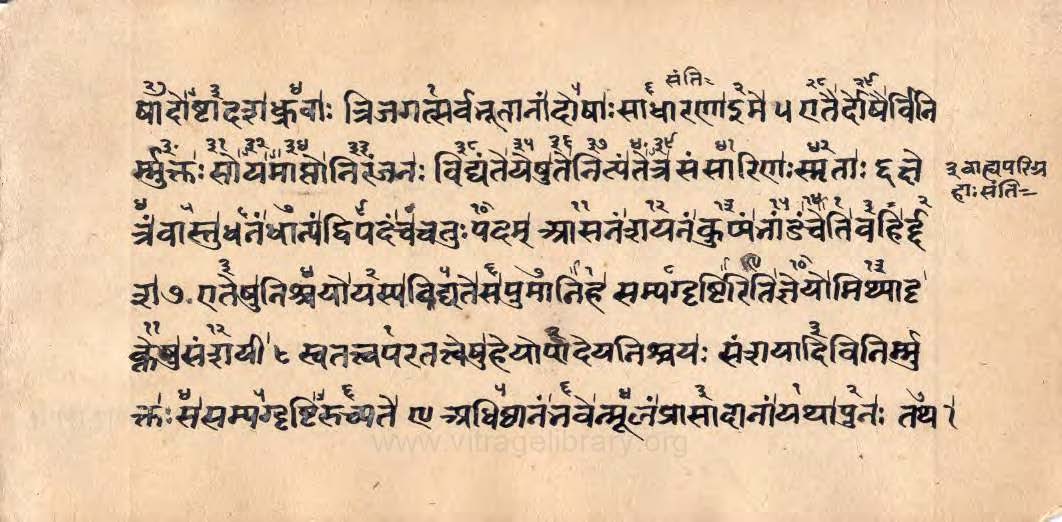 षादोष्टादशध्रुवाः त्रिजगत्सर्वभूतानां दोषाः साधारणाइमे ५ एतैर्दोषैर्विनि
र्म्मुक्तः सोयमाप्तो निरंजनः विद्यंते येषु ते नित्यं तेत्र संसारिणः स्मृताः ६ क्षे
त्रं वास्तु धनं धान्यं द्विपदं च चतुःपदम् आसनं शयनं कुप्यं भांडं चेति बहिर्द्द
श ७ एतेषु निश्चयो यस्य विद्यते स पुमानिह सम्यग्दृष्टिरिति ज्ञेयो मिथ्यादृ
क्तेषु संशयी ८ स्वतत्त्वपरतत्त्वेषु हेयोपादेयनिश्चयः संशयादिविनिर्म्मु
क्तः स सम्यग्दृष्टिरुच्यते ९ अधिष्ठानं भवेन्मूलं प्रासादानां यथा पुनः तथा
संति
३ बाह्यपरिग्र
हाः संति
www.vitragelibrary.org